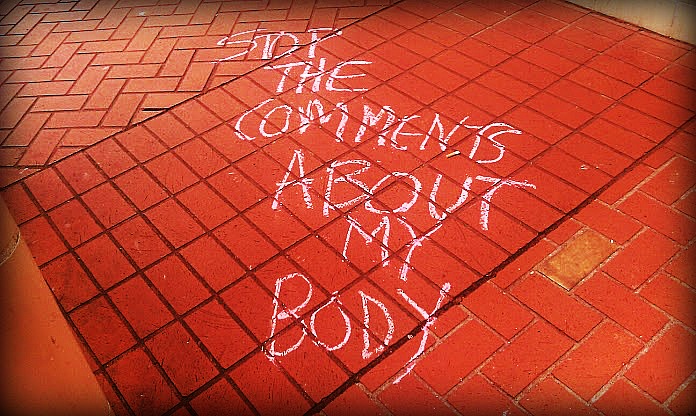 STOP
THE
COMMENTS
ABOUT
MY
BODY